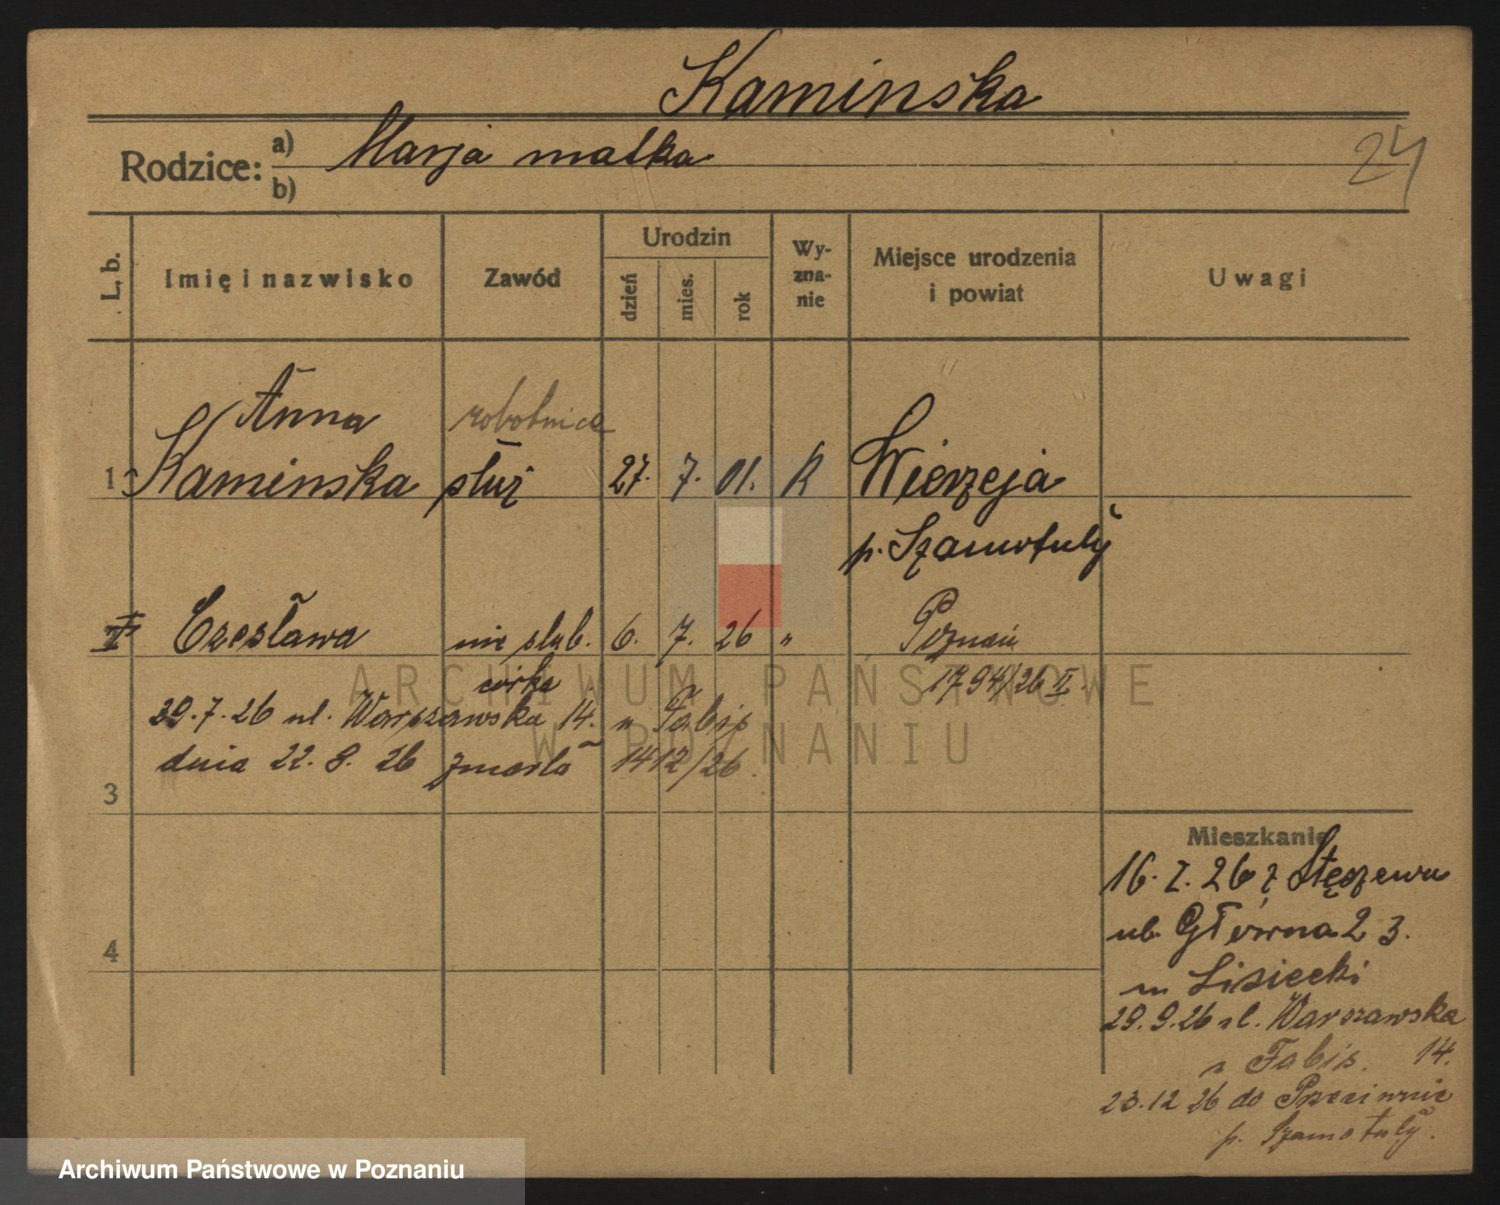 Kaminska
Rodzice:
a) Marja matka
b)
24
L. b.
Imię i nazwisko
Zawód
Urodzin
dzień
mies.
rok
Wy-
zna-
nie
Miejsce urodzenia
i powiat
Uwagi
Anna
robotnica
1 Kaminska służ 27. 7. 01. R Wierzeja
p. Szamotuły
II Czesława nie ślub. 6. 7. 26 " Poznań
córka 1794/26 II.
29.7.26 ul. Warszawska 14. u Fabis
dnia 22. 8. 26 zmarła 1412/26.
3
Mieszkanie
16. I. 26 z Stęszewa
4
ul. Główna 23.
u Lisiecki
29.9.26 ul. Warszawska
u Fabis. 14.
23.12 26 do
p. Szamotuły.
ARCHIWUM PAŃSTWOWE
W POZNANIU
Archiwum Państwowe w Poznaniu